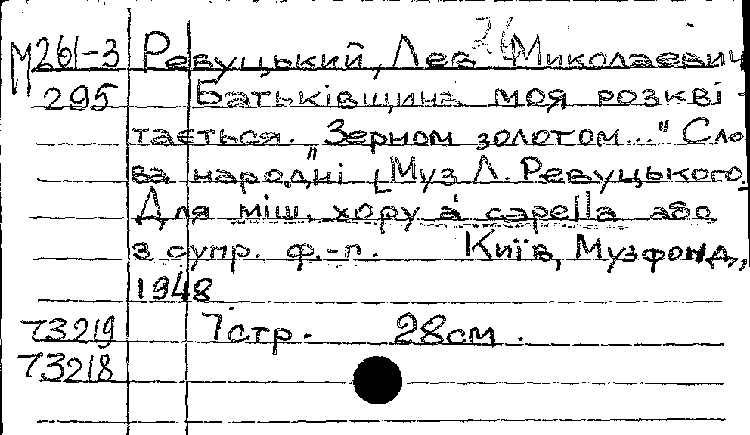 М261-3 Ревуцький, Лев Миколаевич
295 Батьківщина моя розкві-
тається. „Зерном золотом..." Сло
ва народні [Муз Л. Ревуцького.]
Для міш. хору a capella або
з супр. ф.-п. Київ, Музфонд,
1948
73219 7стр. 28см.
73218